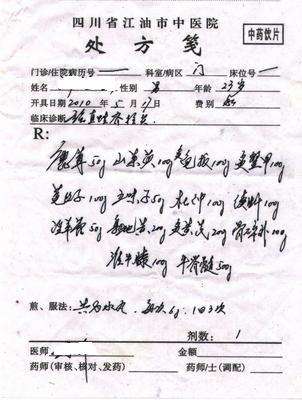 四川省江油市中医院
处方笺
中药饮片
门诊/住院病历号 一 科室/病区 门 床位号 一
姓名 性别 男 年龄 23岁
开具日期 2010 年 5 月 17日 费别
临床诊断
R:
鹿茸50g 山茱萸100g 炙龟板100g 炙鳖甲100g
菟丝子100g 五味子50g 杜仲100g 续断100g
淫羊藿50g 20g 炙黄芪20g 骨碎补100g
淮牛膝100g 牛骨髓500g
煎、服法: 共为水丸 每次6g 1日3次
剂数: 1
医师 金额
药师(审核、核对、发药) 药师/士(调配)